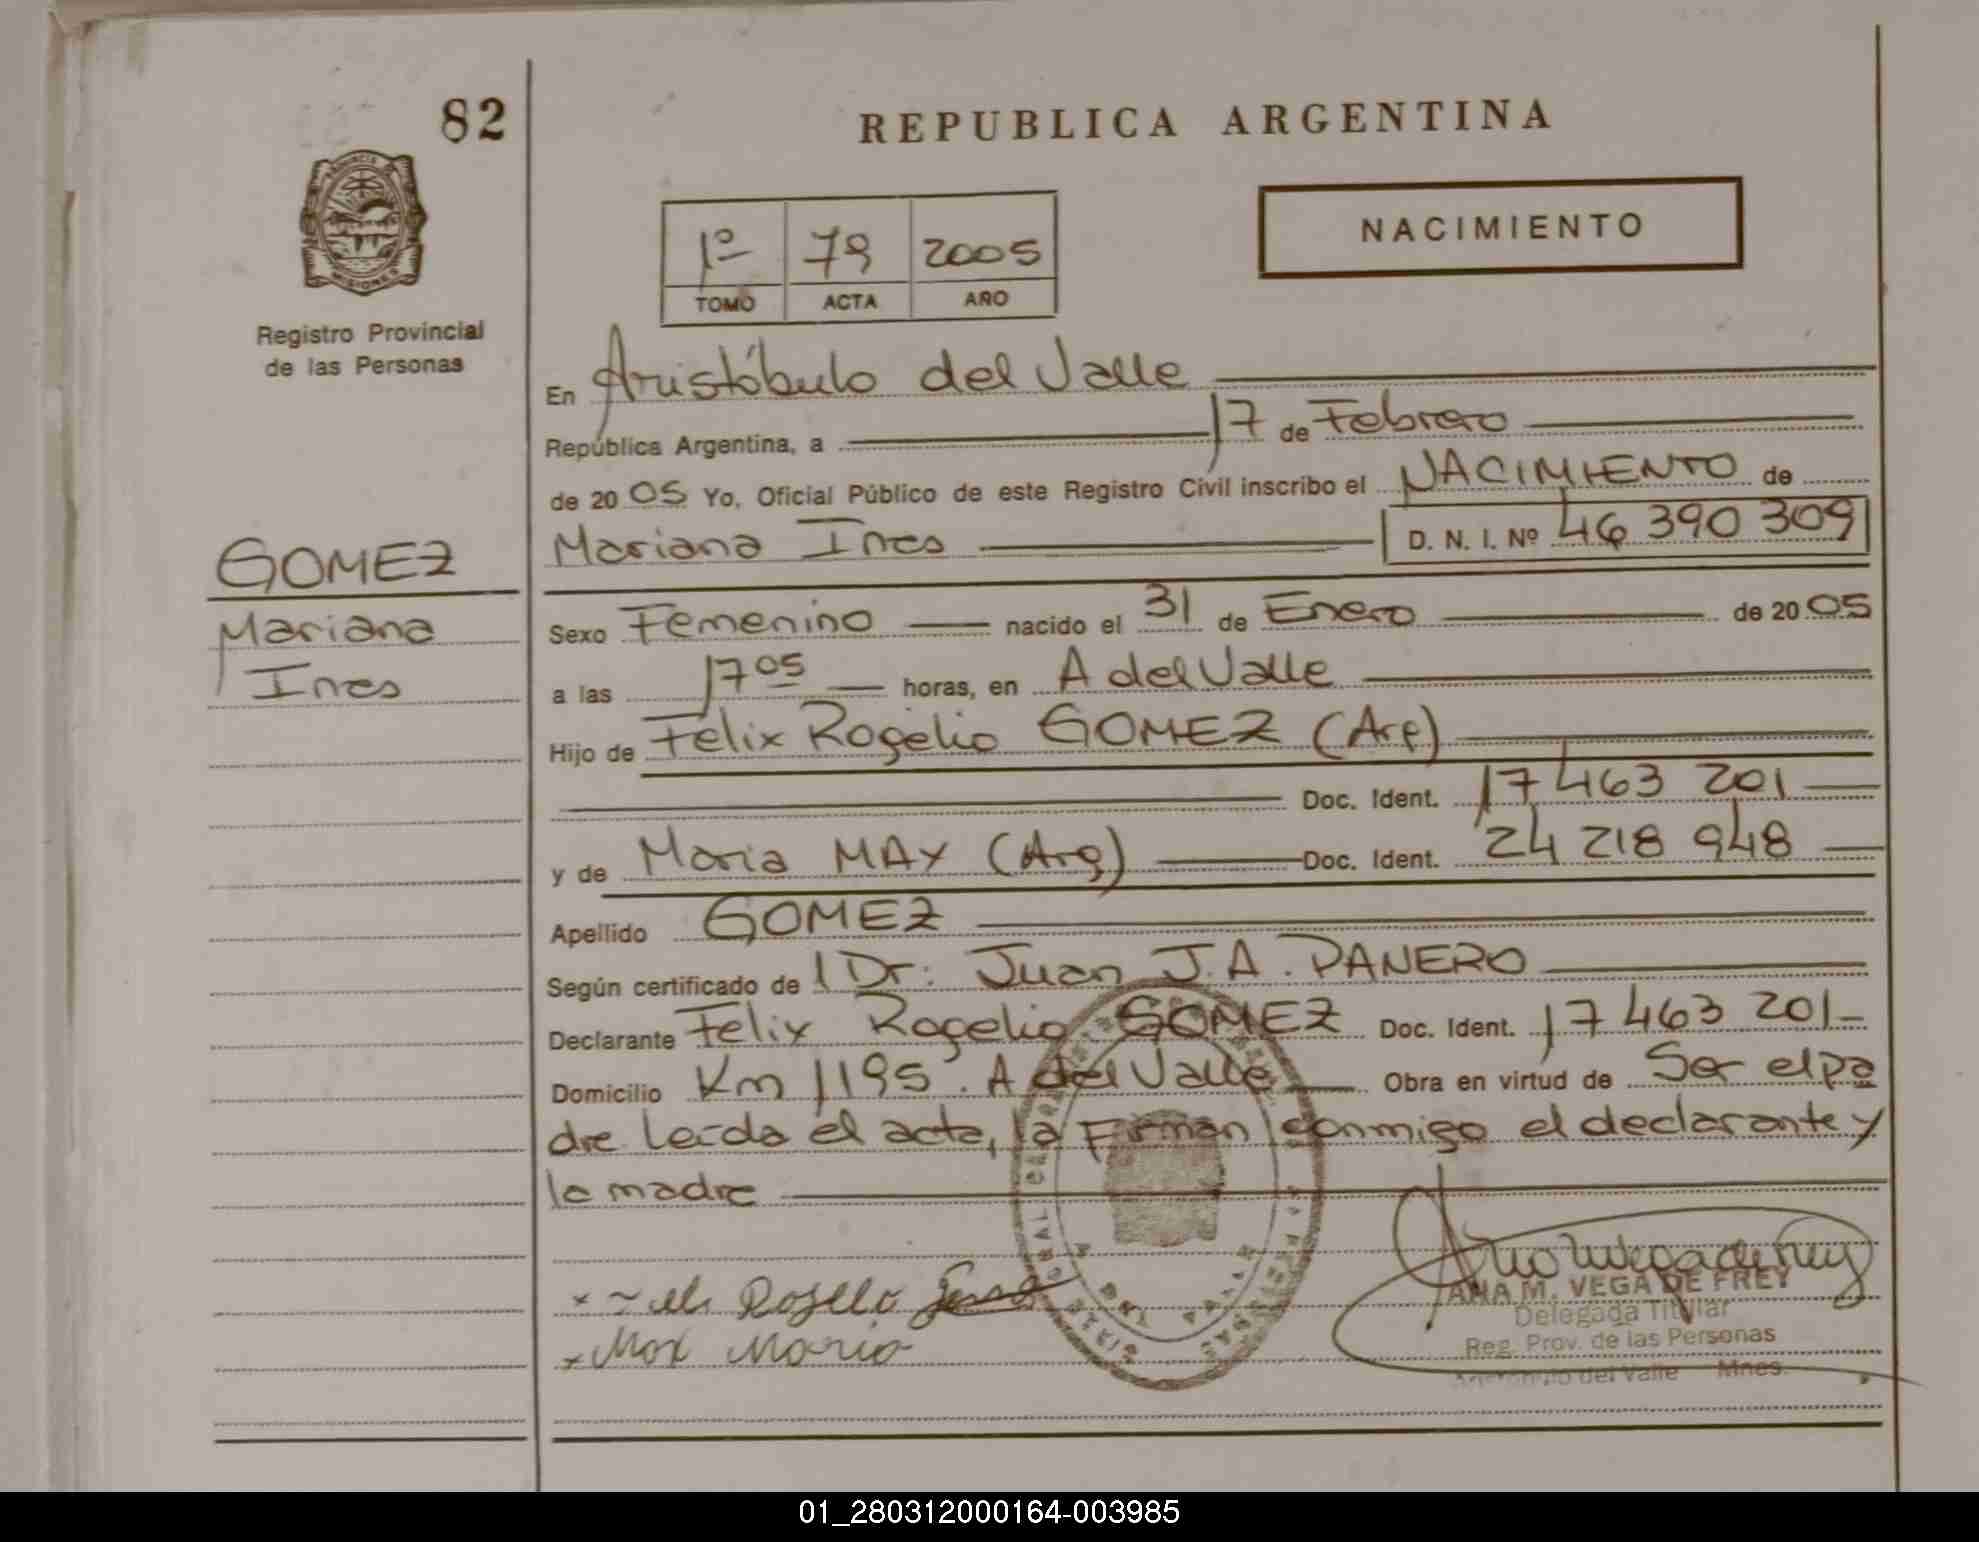 82
REPUBLICA ARGENTINA
NACIMIENTO
1º 79 2005
TOMO ACTA AÑO
PROVINCIA
MISIONES
Registro Provincial
de las Personas
En Aristóbulo del Valle
República Argentina, a 17 de Febrero
de 20 05 Yo, Oficial Público de este Registro Civil inscribo el NACIMIENTO de
Mariana Ines D. N. I. Nº 46 390 309
GOMEZ
Mariana
Ines
Sexo Femenino nacido el 31 de Enero de 20 05
a las 17 05 horas, en A del Valle
Hijo de Felix Rogelio GOMEZ (Arg)
Doc. Ident. 17 463 201
y de Maria MAX (Arg) Doc. Ident. 24 218 948
Apellido GOMEZ
Según certificado de Dr. Juan J.A. PANERO
Declarante Felix Rogelio GOMEZ Doc. Ident. 17 463 201
Domicilio Km 1195. A del Valle Obra en virtud de Ser el pa
dre Leída el acta, la Firman conmigo el declarante y
la madre
Max Maria
ANA M. VEGA DE FREY
Delegada Titular
Reg. Prov. de las Personas
del Valle Mnes.
01_280312000164-003985